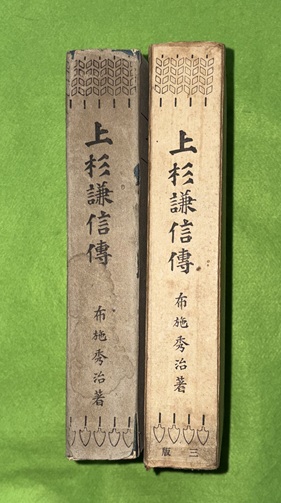 上杉謙信傳
布施秀治著
上杉謙信傳
布施秀治著
三版